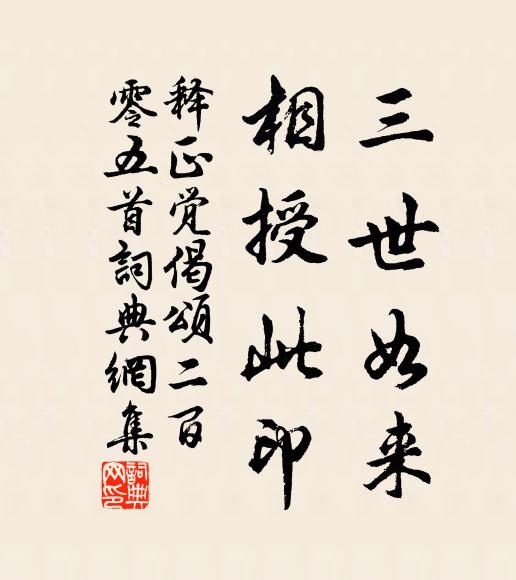 三世如来
相授此印
释正觉偈頌二百
零五首詞典網集
詞典网印